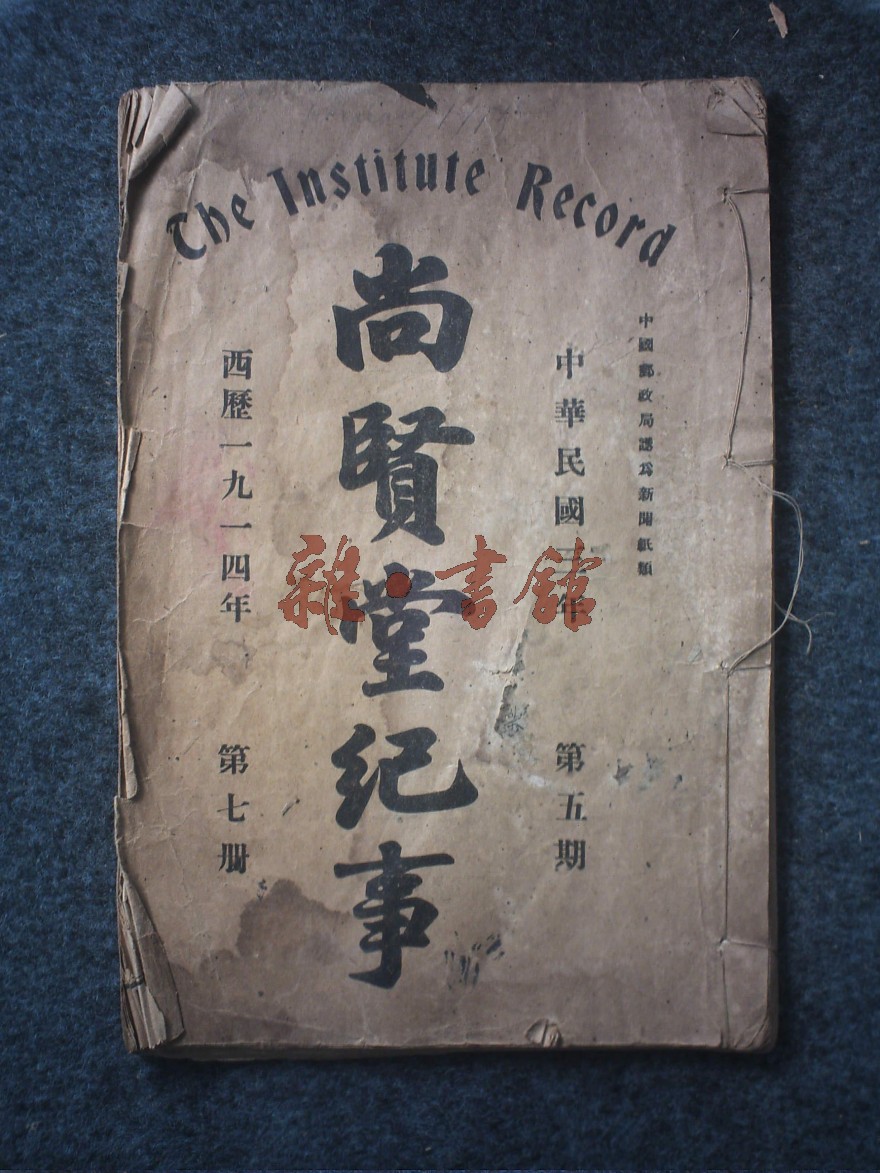 The Institute Record
中國郵政局認爲新聞紙類
中華民國三年
第五期
尚賢堂紀事
西歷一九一四年
第七册
雜·書館